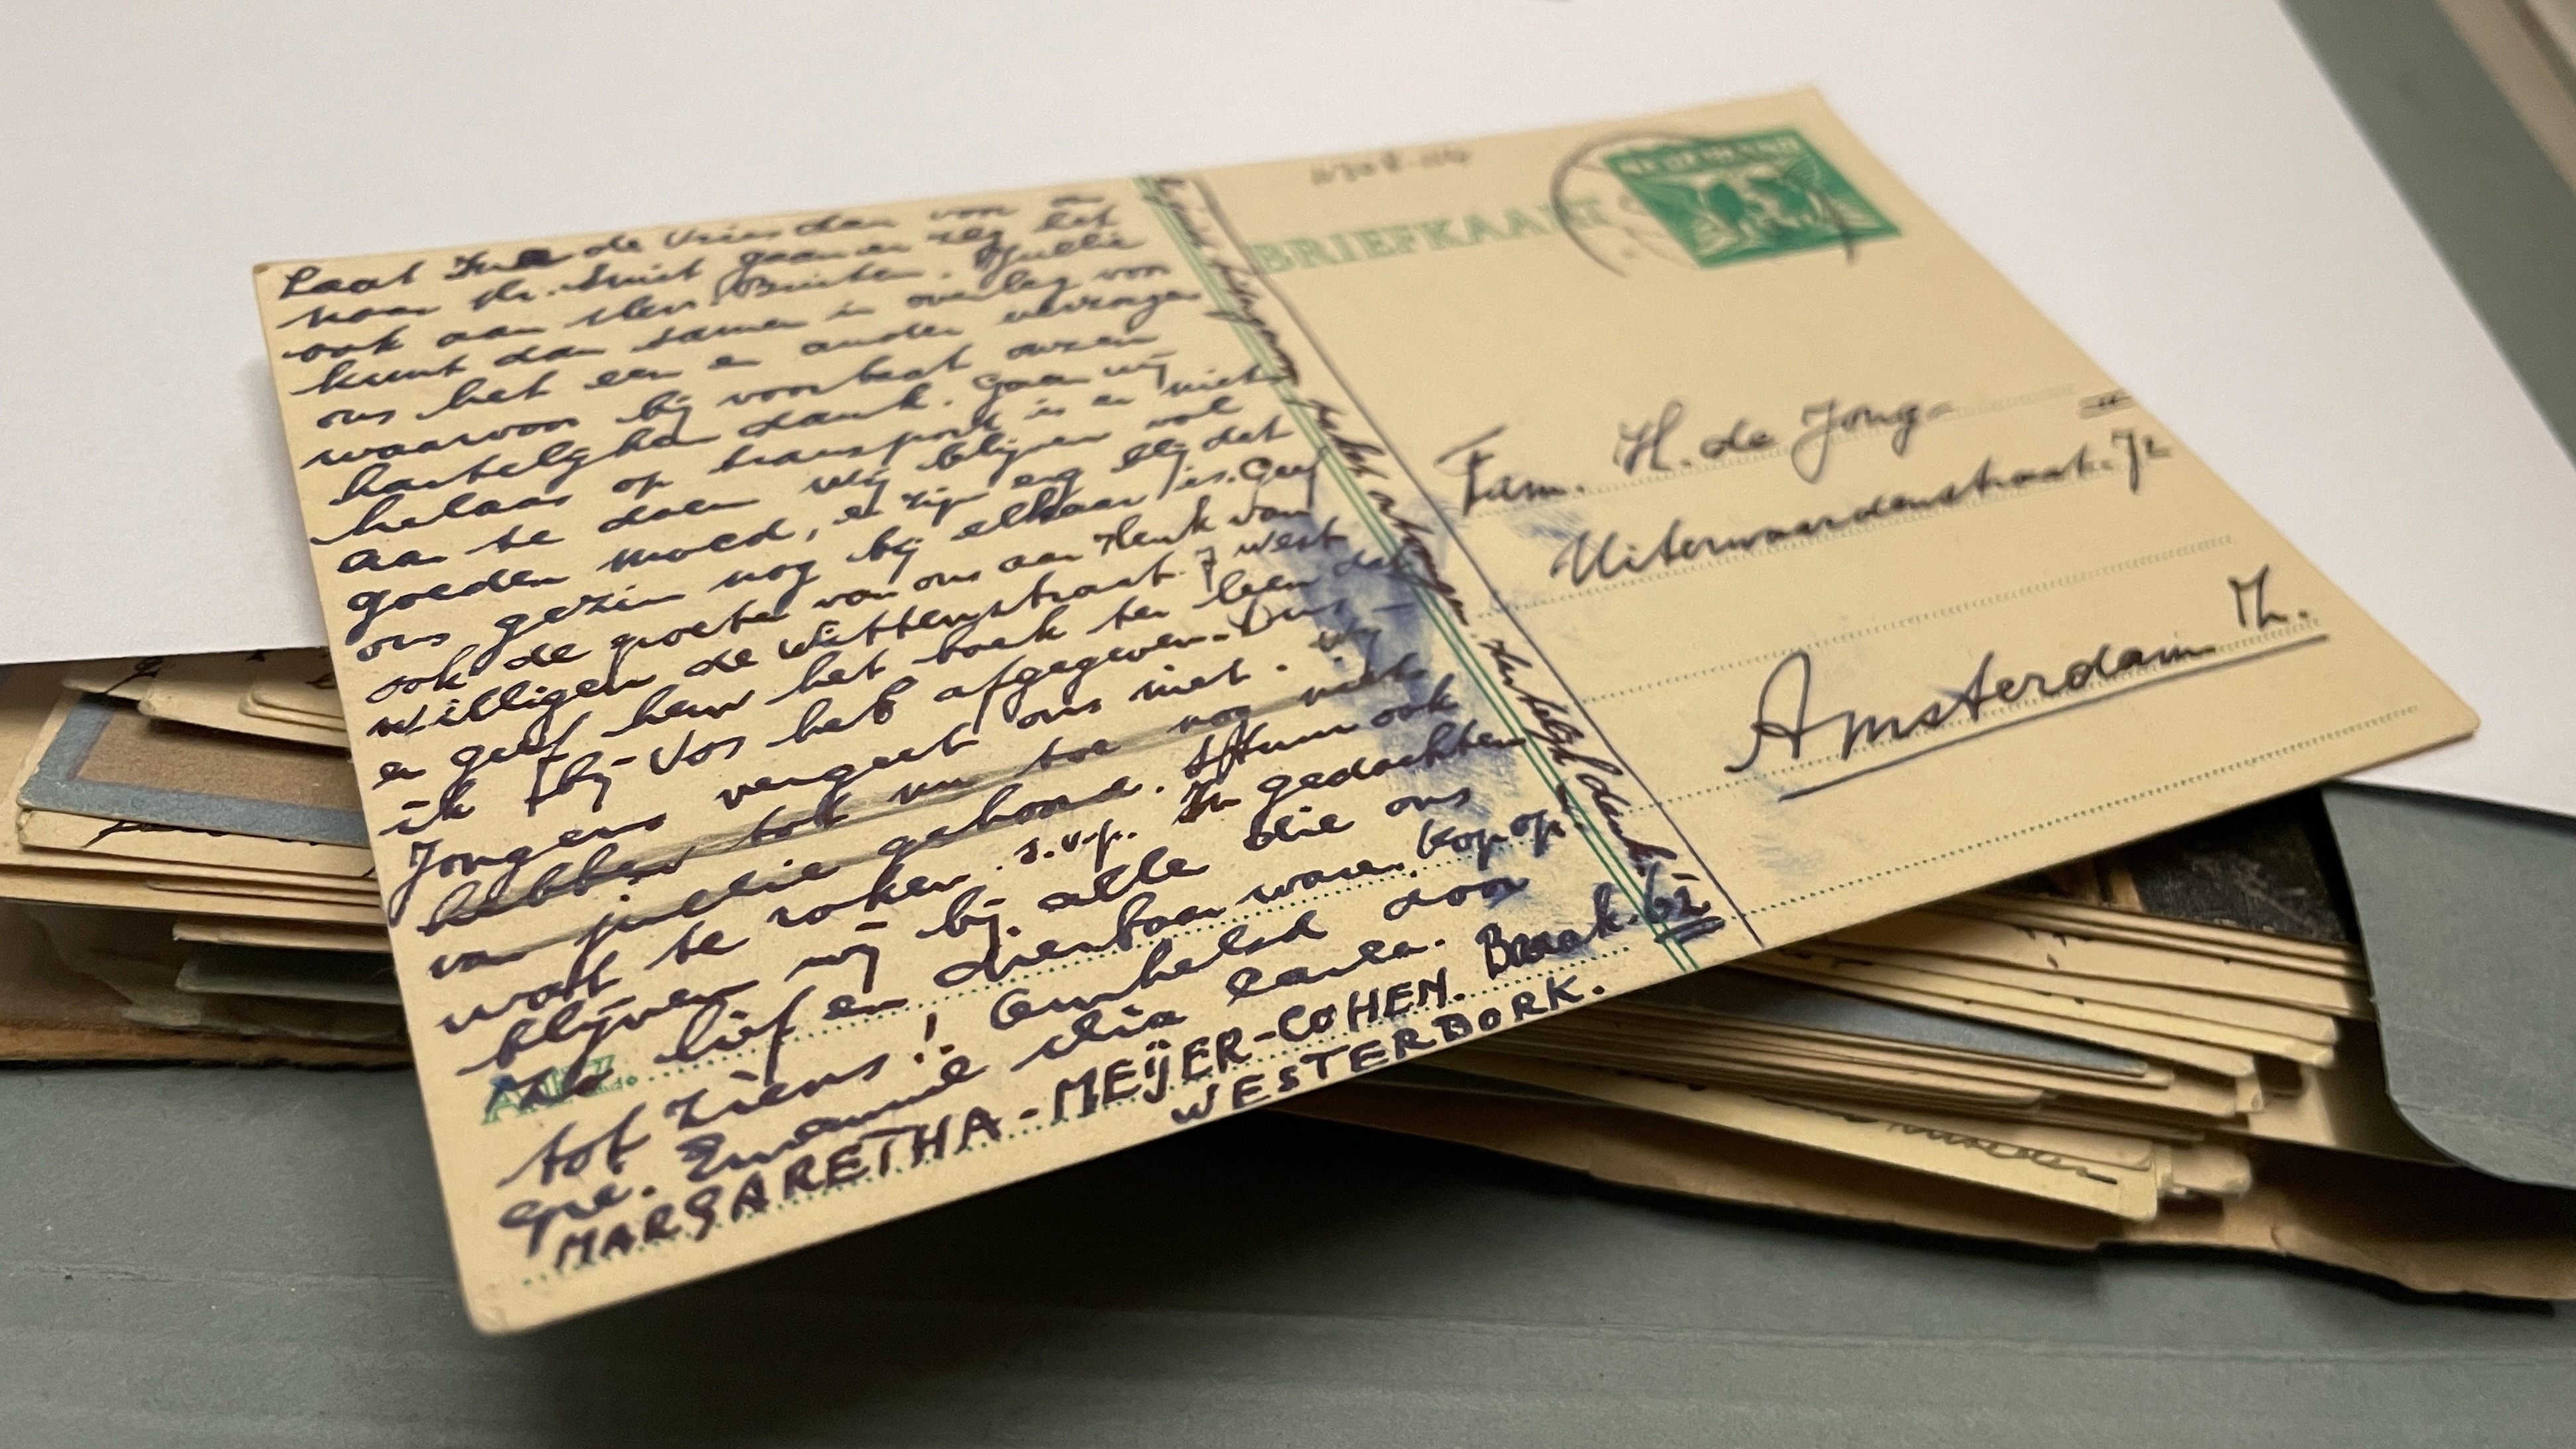 Laat de Vries dan voor
naar Mr. Smit gaan en zeg het
ook aan Mevr. Bruten. Jullie
kunt dan samen in overleg voor
ons het een en ander verzorgen
waarvoor bij voorbaat onzen
hartelijken dank. Gaan wij
helaas op transport is er niets
aan te doen wij blijven vol
goeden moed, en zijn erg blij dat
ons gezin nog bij elkaar is. Geef
ook de groeten van ons aan Henk van
Willigen de Wittenstraat 7 West
en geef hem het boek te leen dat
ik bij Vos heb afgegeven. Dus -
Jongens vergeet ons niet. Wij
hebben tot nu toe nog niets
van jullie gehoord. Stuur ook
wat te roken s.v.p. In gedachten
blijven wij bij alle die ons
zoo lief en dierbaar waren. Kop op.
tot ziens! Omhelsd door
gre. Emmanuel
MARGARETHA-MEIJER-COHEN. Barak. 62
WESTERBORK.
pakket ontvangen. Hartelijk dank!
BRIEFKAART
NEDERLAND
Fam. H. de Jong-
Uiterwaardenstraat 72
Amsterdam Z.